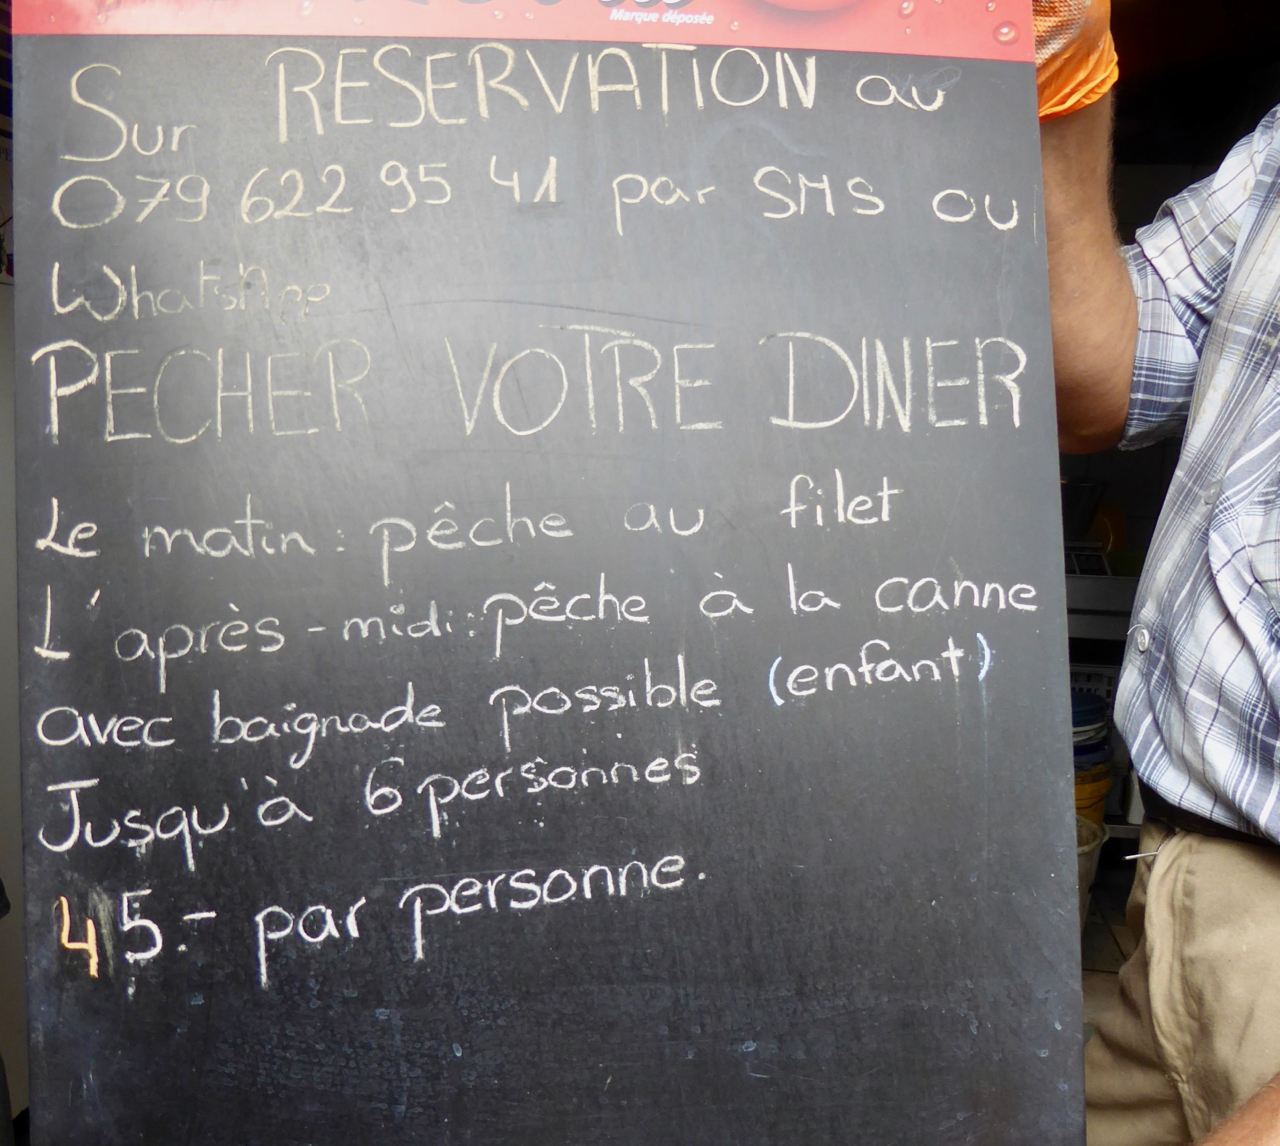 Marque déposée
Sur RESERVATION au
079 622 95 41 par SMS ou
WhatsApp
PECHER VOTRE DINER
Le matin : pêche au filet
L'après-midi : pêche à la canne
avec baignade possible (enfant)
Jusqu'à 6 personnes
45.- par personne.